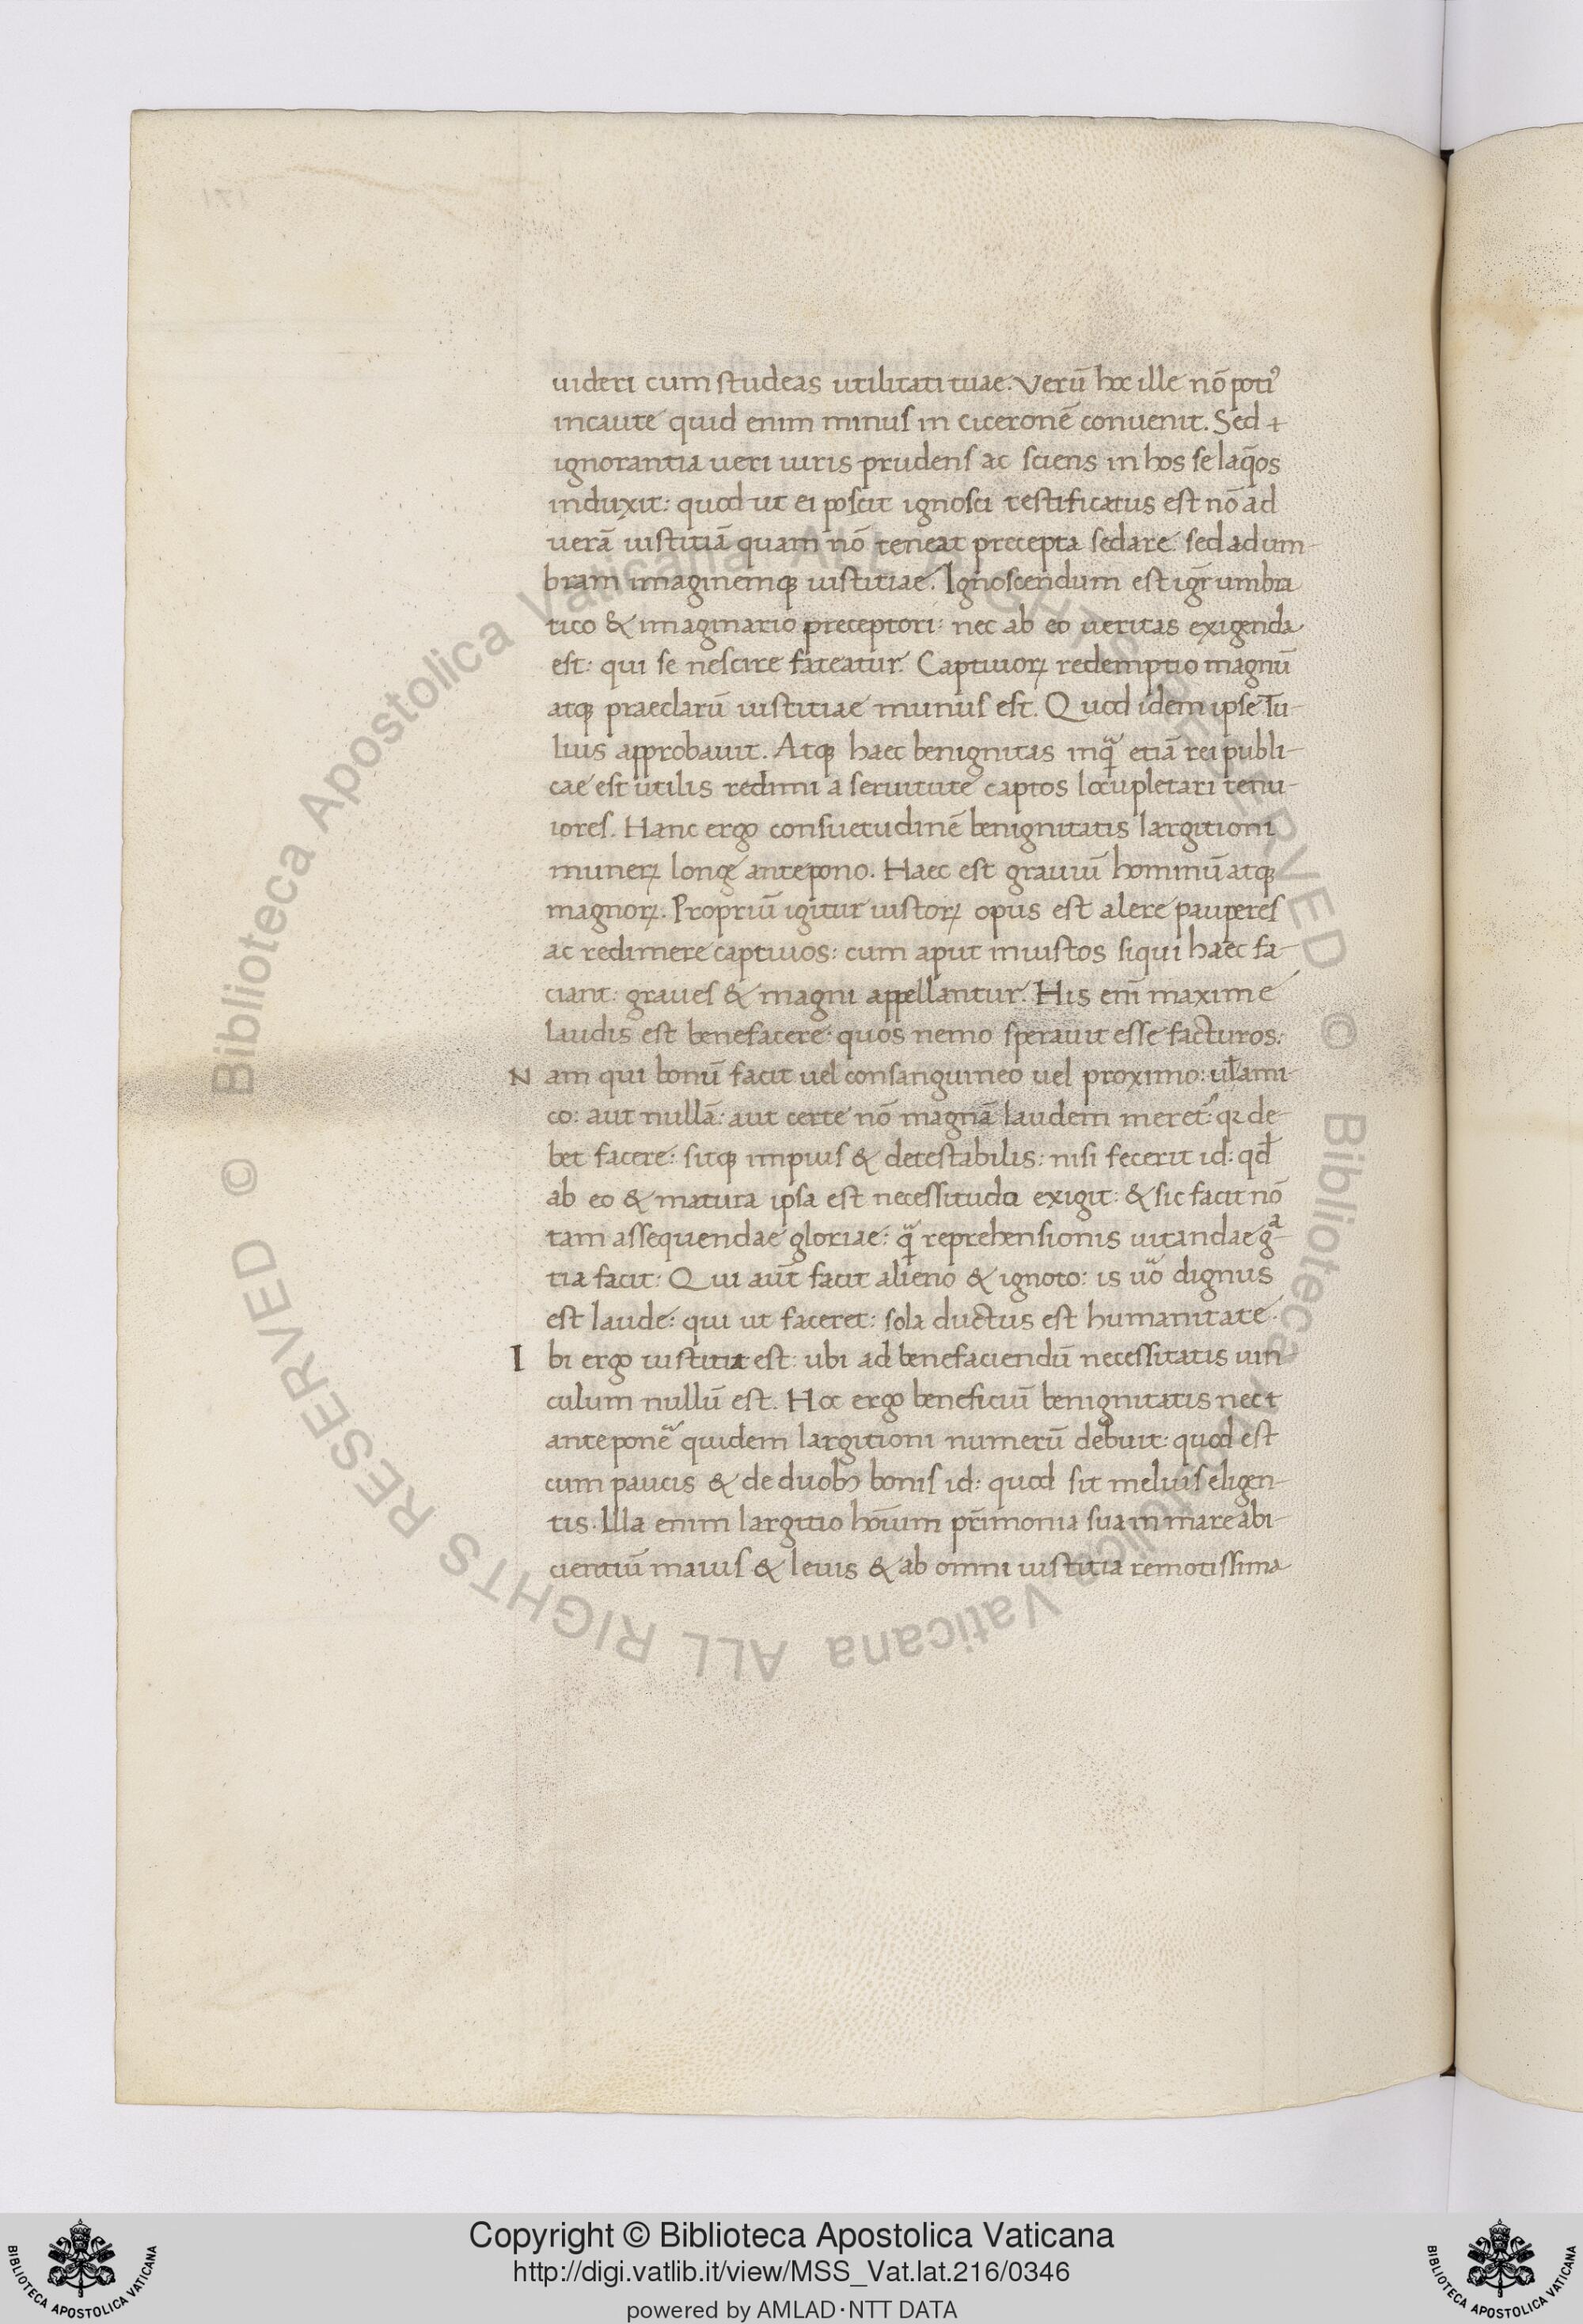 uideri cum studeas utilitati tuae. Verū hoc ille nō poti᾽
incaute quid enim minus in ciceronē conuenit. Sed
ignorantia ueri iuris prudens ac sciens in hos se laq̄os
induxit: quod ut ei poscit ignosci testificatus est nō ad
uerā iustitiā quam nō teneat precepta sedare: sed ad um-
bram imaginemq; iustitiae. Ignoscendum est igr̄ umbra
tico & imaginario preceptori: nec ab eo ueritas exigenda
est: qui se nescire fateatur. Captiuorꝝ redemptio magnū
atq; praeclarū iustitiae munus est. Quod idem ipse Tu-
lius approbauit. Atq; haec benignitas inqͣ etiā rei publi-
cae est utilis redimi a seruitute captos locupletari tenu-
iores. Hanc ergo consuetudinē benignitatis largitioni
munerꝝ longe antepono. Haec est grauiū hominū atq;
magnorꝝ. Propriū igitur iustorꝝ opus est alere pauperes
ac redimere captiuos: cum aput iniustos siqui haec fa-
ciant: graues & magni appellantur. His enī maxime
laudis est benefacere: quos nemo sperauit esse facturos:
N am qui bonū facit uel consanguineo uel proximo: ul̄ ami-
co: aut nullā: aut certe nō magnā laudem meret᾽: qꝛ de-
bet facere: sitq; impius & detestabilis: nisi fecerit id: qđ
ab eo & matura ipsa est necessitudo exigit: & sic facit nō
tam assequendae gloriae: qͣ reprehensionis uitandae gͣ-
tia facit: Qui aūt facit alieno & ignoto: is uͦo dignus
est laude: qui ut faceret: sola ductus est humanitate.
I bi ergo iustitia est: ubi ad benefaciendū necessitatis uin
culum nullū est. Hoc ergo beneficiū benignitatis nec
anteponē quidem largitioni numerū debuit: quod est
cum paucis & de duobꝫ bonis id: quod sit melius eligen-
tis. Illa enim largitio hoīum pr̄imonia sua in mare abi-
cientiū maius & leuis & ab omni iustitia remotissima
Copyright © Biblioteca Apostolica Vaticana
http://digi.vatlib.it/view/MSS_Vat.lat.216/0346
powered by AMLAD·NTT DATA
BIBLIOTECA APOSTOLICA VATICANA
BIBLIOTECA APOSTOLICA VATICANA
© Biblioteca Apostolica Vaticana ALL RIGHTS RESERVED
© Biblioteca Apostolica Vaticana ALL RIGHTS RESERVED